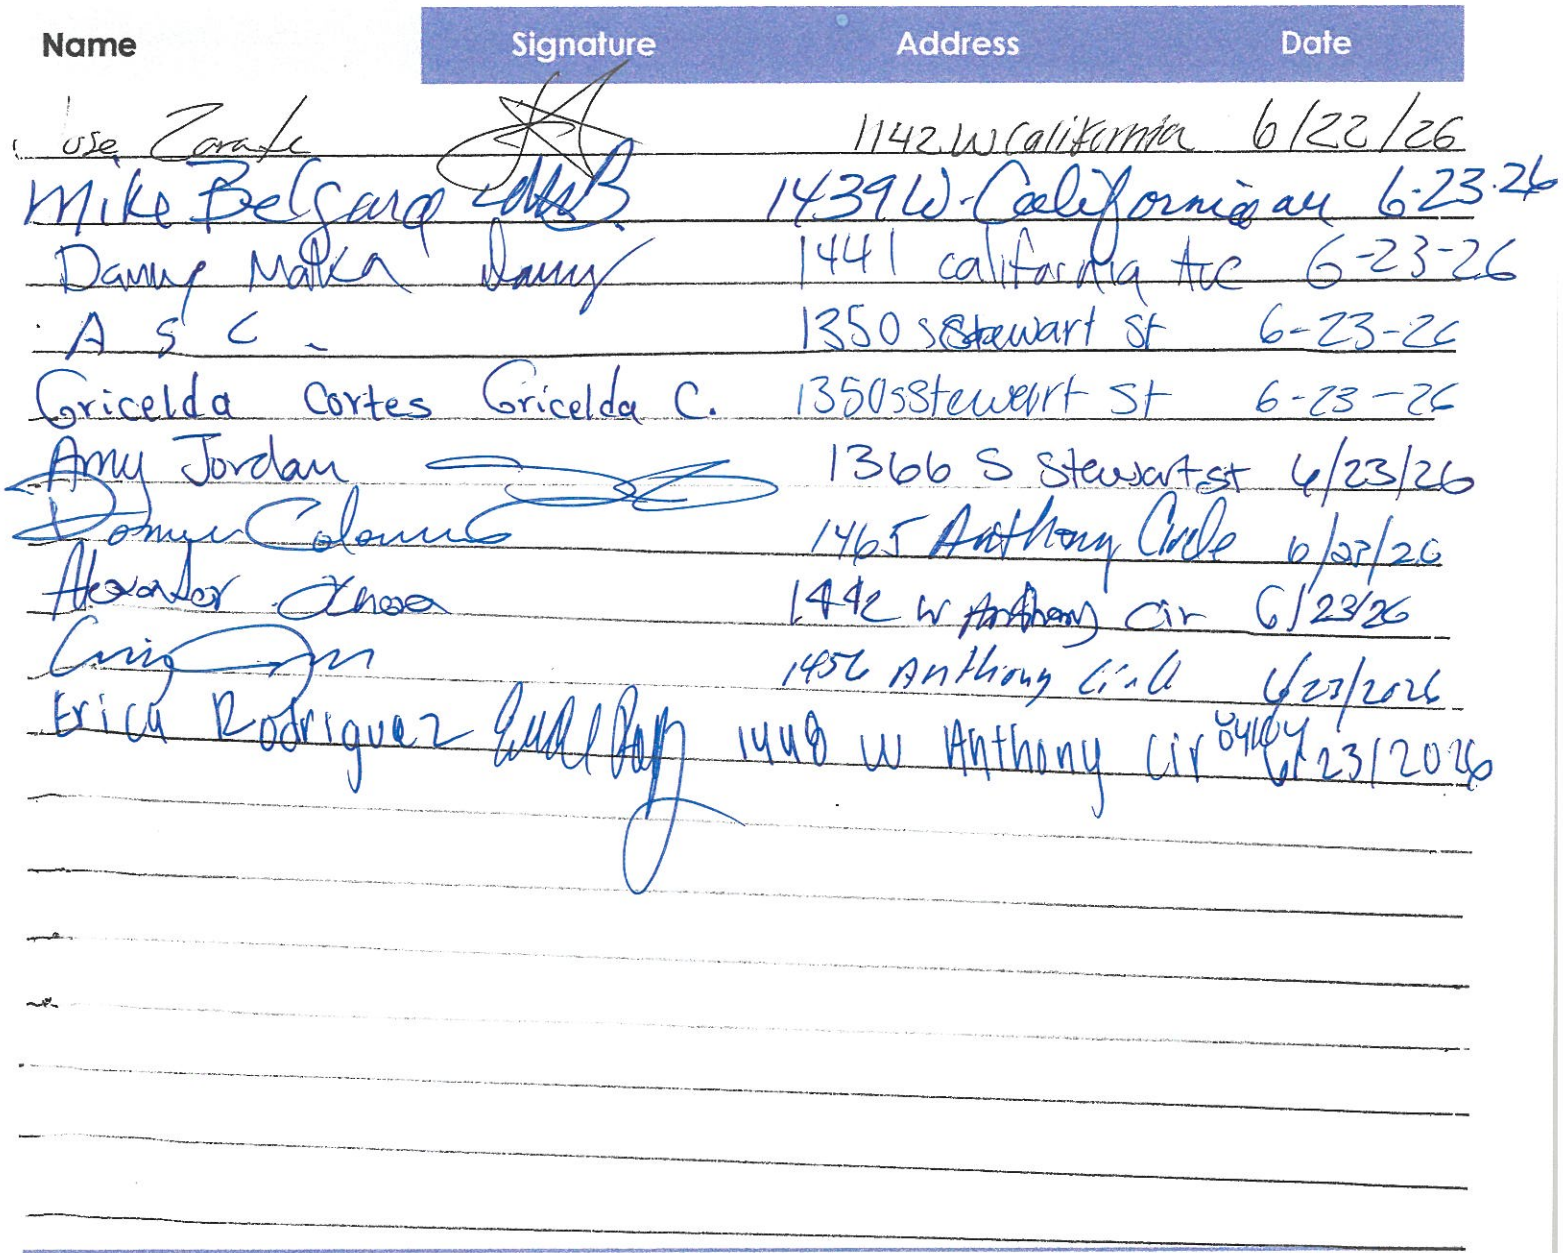 Name Signature Address Date
Jose Zarate 1142 W California 6/22/26
Mike Belgard 1439 W. California av 6-23-26
Danny Matka Danny 1441 california Ave 6-23-26
A S C - 1350 S Stewart St 6-23-26
Gricelda Cortes Gricelda C. 1350 s Stewart St 6-23-26
Amy Jordan 1366 S Stewart st 6/23/26
1465 Anthony Circle 6/23/26
Alexander 1442 W Anthony Cir 6/23/26
1456 Anthony Circle 6/23/2026
Erica Rodriguez 1448 W Anthony Cir 84104 6/23/2026